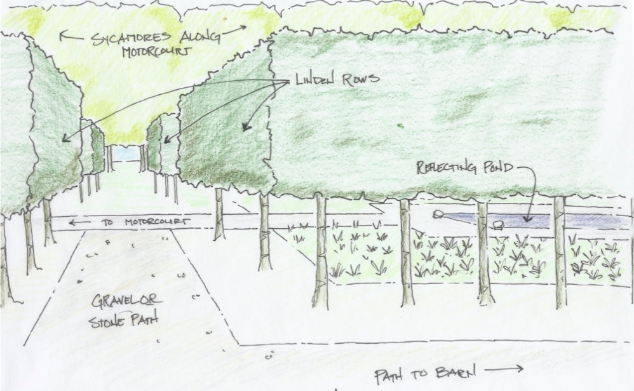 SYCAMORES ALONG
MOTORCOURT
LINDEN ROWS
REFLECTING POND
TO MOTORCOURT
GRAVEL OR
STONE PATH
PATH TO BARN